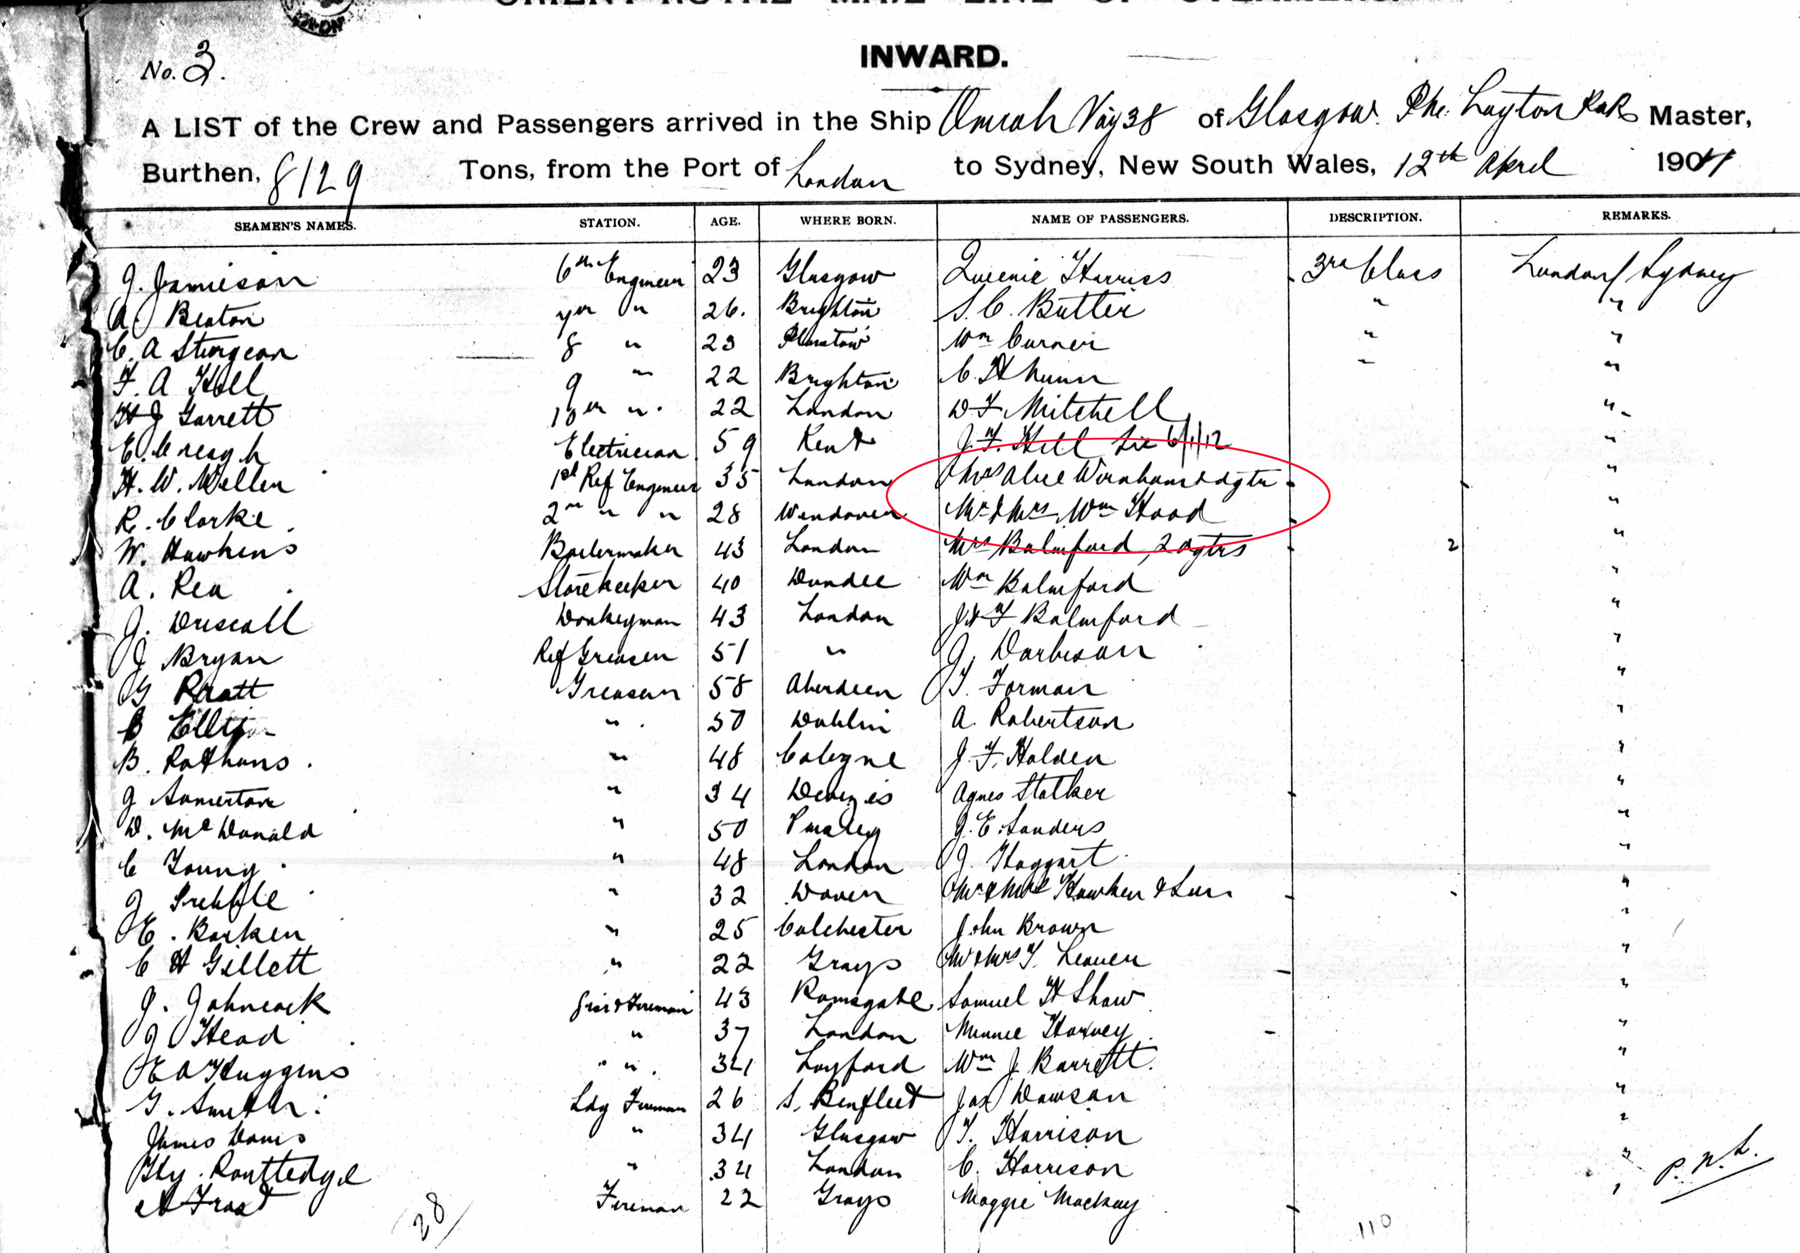 No. 3.
INWARD.
A LIST of the Crew and Passengers arrived in the Ship Omrah Voy 38 of Glasgow. Layton Master,
Burthen, 8129 Tons, from the Port of London to Sydney, New South Wales, 12th April 1911
SEAMEN'S NAMES. STATION. AGE. WHERE BORN. NAME OF PASSENGERS. DESCRIPTION. REMARKS.
J. Jamieson 6th Engineer 23 Glasgow Queenie Harriss 3rd Class London / Sydney
A. Beaton 7th " 26. Brighton S. C. Butter " "
C. A Sturgeon 8 " 23 Plaistow Wm Curner " "
F. A Hill 9 " 22 Brighton C H Nunn " "
H J Garrett 10th " 22 London D F Mitchell "
E. Creagh Electrician 59 Kent J. F. Hill 6/1/12 "
H. W. Mellen 1st Ref Engineer 35 London Mrs Alice Wirnham & dgtr "
R. Clarke 2nd " " 28 Wendover Mr & Mrs Wm Hood "
W. Hawkins Boilermaker 43 London Mrs Balmford, 2 dgtrs 2 "
A. Rea Storekeeper 40 Dundee Wm Balmford "
J. Driscoll Donkeyman 43 London J & F Balmford "
J Bryan Ref Greaser 51 " J. Darbison "
G Pratt Greaser 58 Aberdeen T. Forman "
B " 50 Dublin A. Robertson "
B. Rathans " 48 Cologne J. F. Holden "
J Somerton " 34 Devizes Agnes Stalker "
D. McDonald " 50 J. E. Sanders "
C Young " 48 London J. Haggart "
J Prebble " 32 Dover Mr & Mrs Hawken & Son "
E. Barken " 25 Colchester John Brown "
C H Gillett " 22 Grays Mr & Mrs T. Leaven "
J. Johncock Fireman 43 Ramsgate Samuel H Shaw "
J Head " 37 London Minnie Harvey "
E A Huggins " 34 Layford Wm J Barrett "
G. Smith Ldg Fireman 26 S. Benfleet Jas Dawson "
James Davis " 34 Glasgow T. Harrison "
Hy. Routledge " 34 London C. Harrison "
A Frost Fireman 22 Grays Maggie Mackay "
P. N. L.
28
110